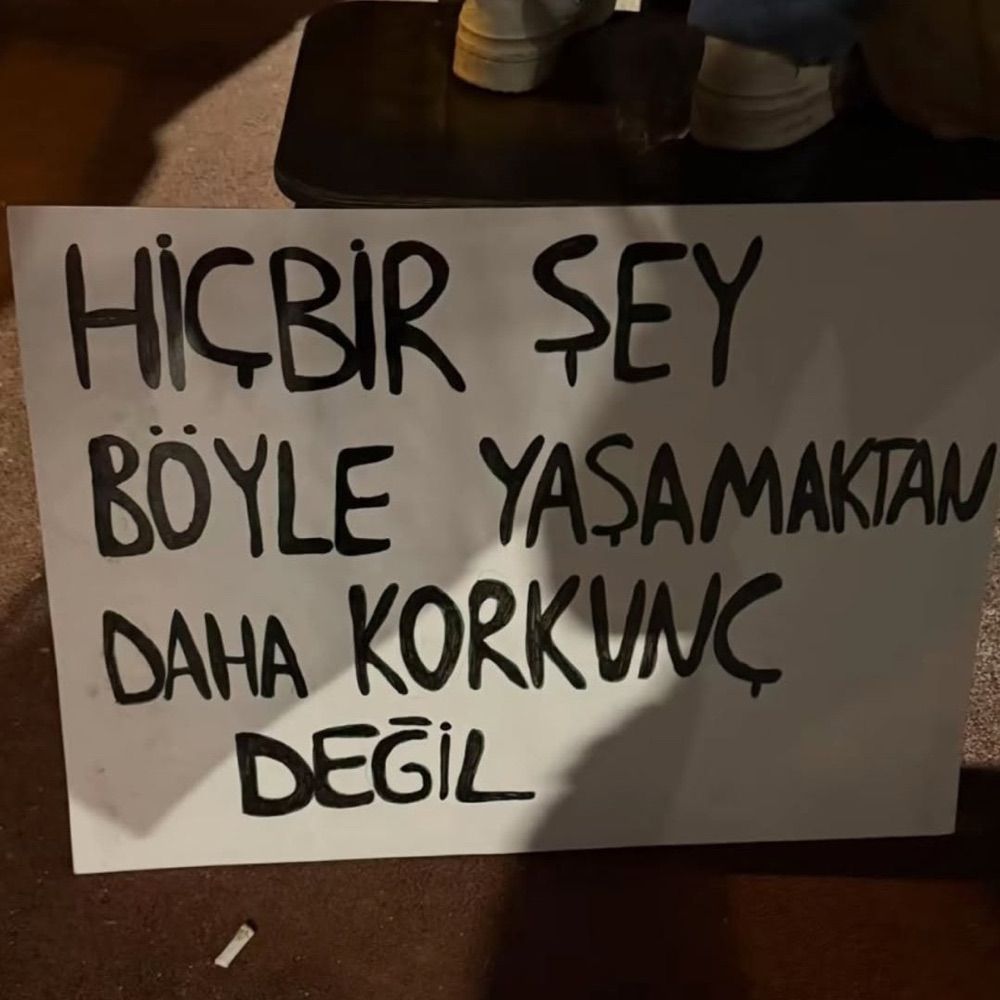 HİÇBİR ŞEY
BÖYLE YAŞAMAKTAN
DAHA KORKUNÇ
DEĞİL